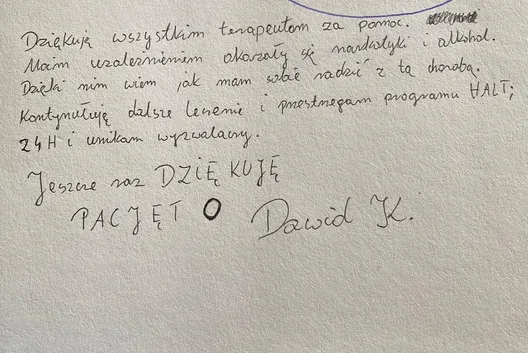 Dziękuję wszystkim terapeutom za pomoc.
Moim uzależnieniem okazały się narkotyki i alkohol.
Dzięki nim wiem jak mam sobie radzić z tą chorobą.
Kontynułuję dalsze leczenie i przestrzegam programu HALT;
24H i unikam wyzwalaczy.
Jeszcze raz DZIĘKUJĘ
PACJĘT O Dawid K.